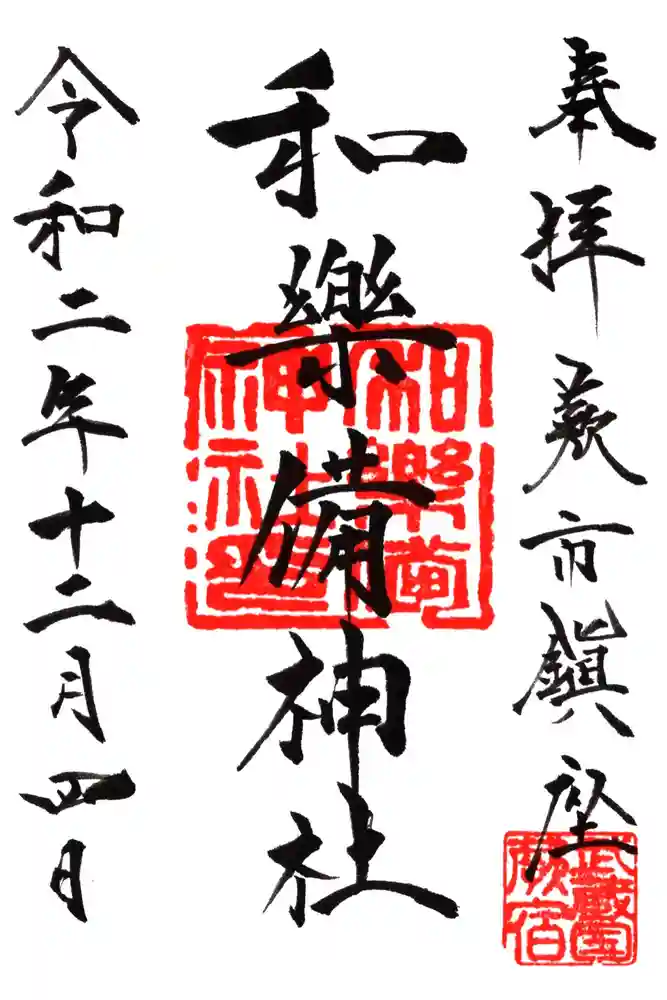 奉拝 蕨市鎮座
武蔵国
蕨宿
和樂備神社
和樂備
神社印
令和二年十二月四日